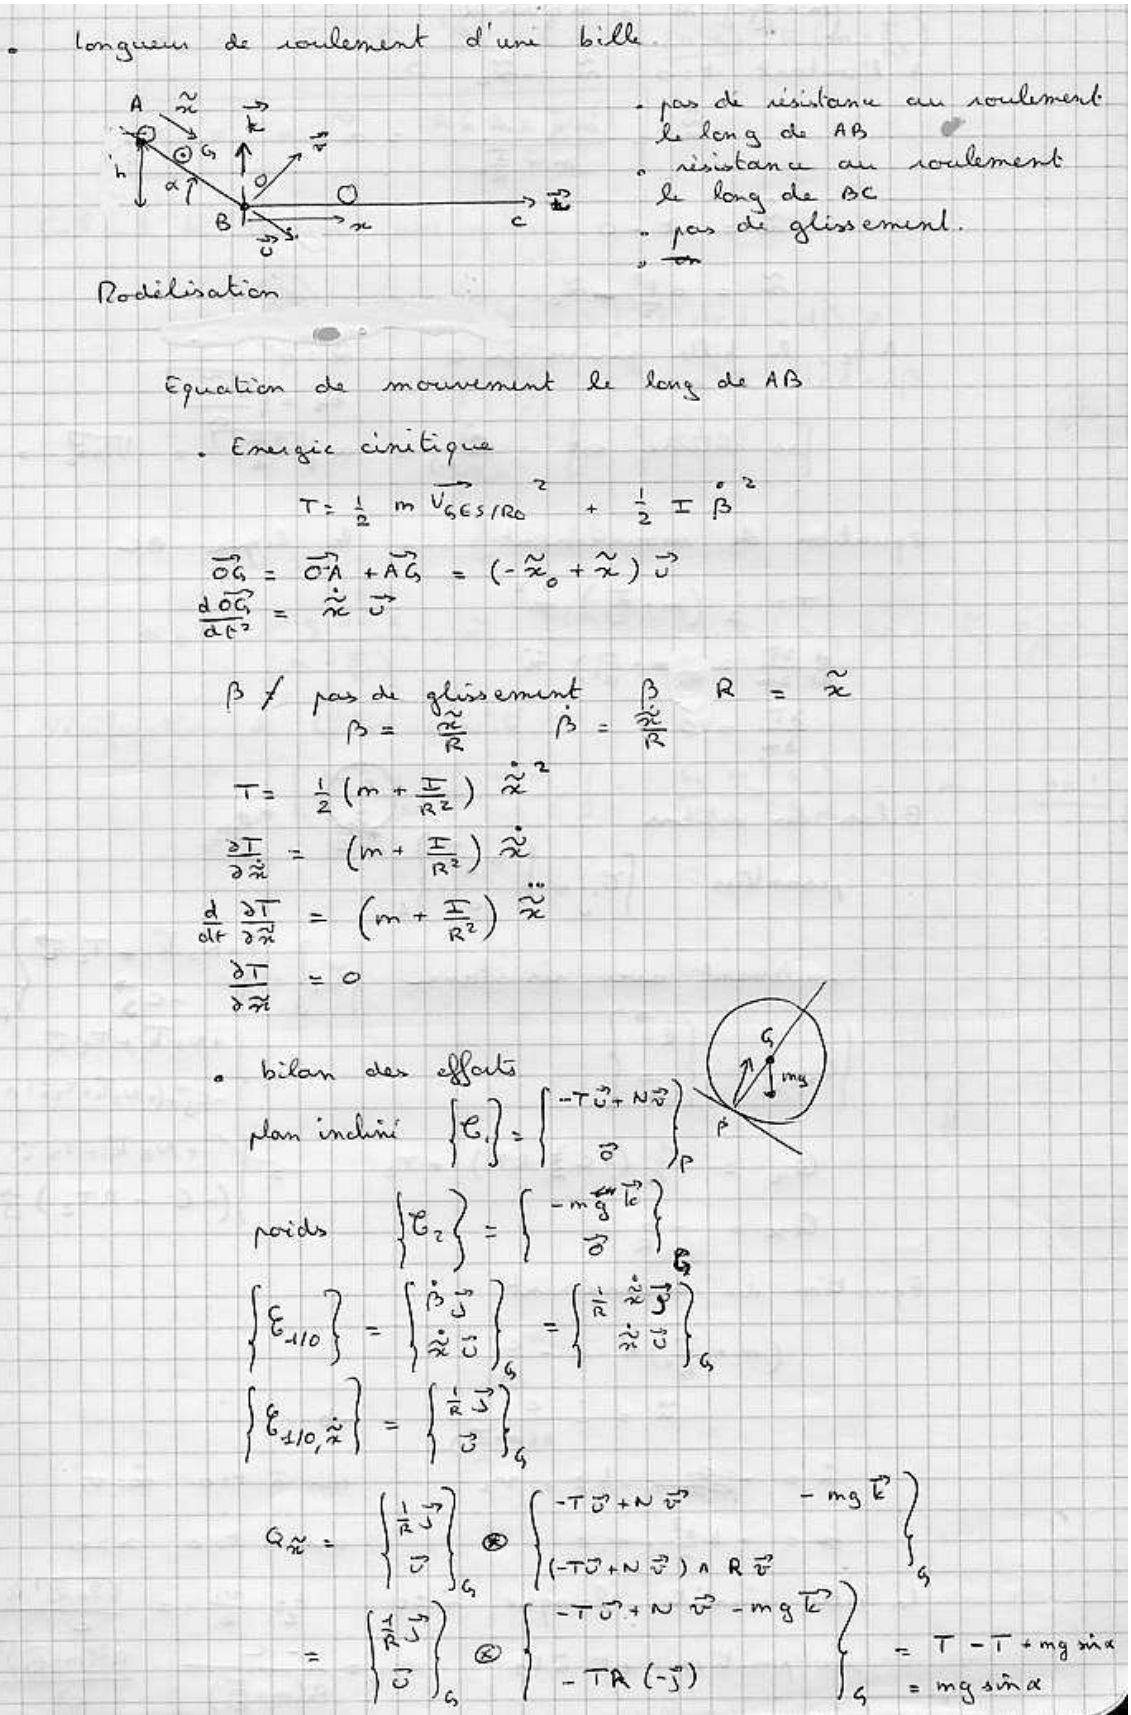 • longueur de roulement d'une bille.
A x̃ k⃗
G v⃗
h α O
B x C
u⃗
• pas de résistance au roulement
le long de AB
• résistance au roulement
le long de BC
• pas de glissement.
Modélisation
Equation de mouvement le long de AB
• Energie cinétique
T = 1/2 m V⃗_{G∈S/R0}² + 1/2 I β̇²
OG⃗ = OA⃗ + AG⃗ = (-x̃₀ + x̃) u⃗
dOG⃗/dt² = x̃̇ u⃗
β / pas de glissement β R = x̃
β = x̃/R β̇ = x̃̇/R
T = 1/2 (m + I/R²) x̃̇²
∂T/∂x̃̇ = (m + I/R²) x̃̇
d/dt ∂T/∂x̃̇ = (m + I/R²) x̃̈
∂T/∂x̃ = 0
• bilan des efforts
G
mg
P
plan incliné {𝒞₁} = {-T u⃗ + N v⃗ ; 0⃗}_P
poids {𝒞₂} = {-mg k⃗ ; 0⃗}_G
{𝒞_{1/0}} = {β̇ j⃗ ; x̃̇ u⃗}_G = {1/R x̃̇ j⃗ ; x̃̇ u⃗}_G
{𝒞_{1/0, x̃̇}} = {1/R j⃗ ; u⃗}_G
Q_x̃ = {1/R j⃗ ; u⃗}_G ⊗ {-T u⃗ + N v⃗ - mg k⃗ ; (-T u⃗ + N v⃗) ∧ R v⃗}_G
= {1/R j⃗ ; u⃗}_G ⊗ {-T u⃗ + N v⃗ - mg k⃗ ; -TR (-j⃗)}_G = T - T + mg sin α
= mg sin α